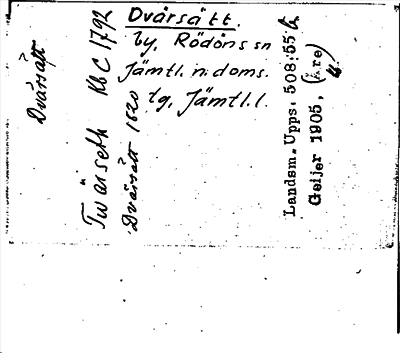 Dvärsätt.
by, Rödöns sn
Jämtl. n. doms.
tg, Jämtl. l.
Dvärsätt
Twärseth Kb C 1792
Dvärsätt 1820
Landsm. Upps. 508:55
Geijer 1905. (Åre)